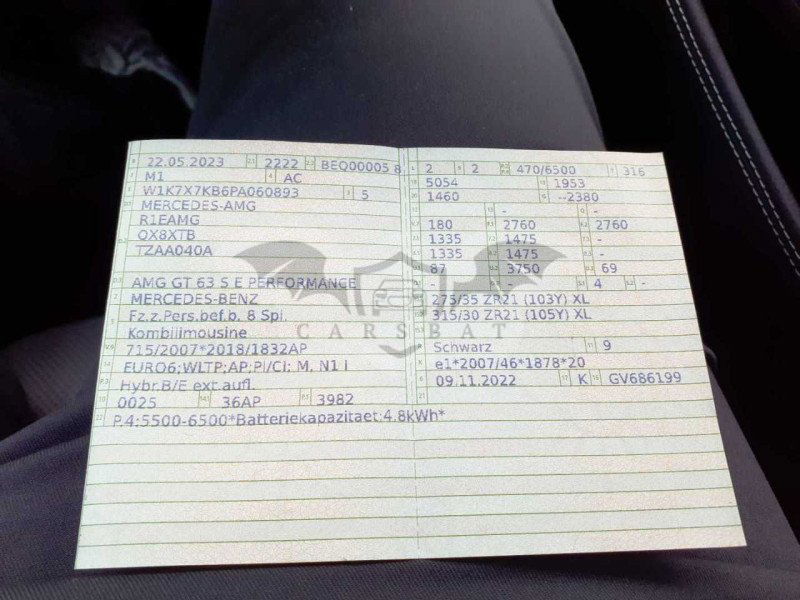 22.05.2023 2222 BEQ00005 8
M1 AC
W1K7X7KB6PA060893 5
MERCEDES-AMG
R1EAMG
OX8XTB
TZAA040A
AMG GT 63 S E PERFORMANCE
MERCEDES-BENZ
Fz.z.Pers.bef.b. 8 Spl.
Kombilimousine
715/2007*2018/1832AP
EURO6;WLTP;AP;PI/CI; M, N1 I
Hybr.B/E ext.aufl.
0025 36AP 3982
P.4:5500-6500*Batteriekapazitaet:4.8kWh*
2 2 470/6500 316
5054 1953
1460 --2380
- -
180 2760 2760
1335 1475 -
1335 1475 -
87 3750 69
- - 4 -
275/35 ZR21 (103Y) XL
315/30 ZR21 (105Y) XL
Schwarz 9
e1*2007/46*1878*20
09.11.2022 K GV686199
CARSBAT